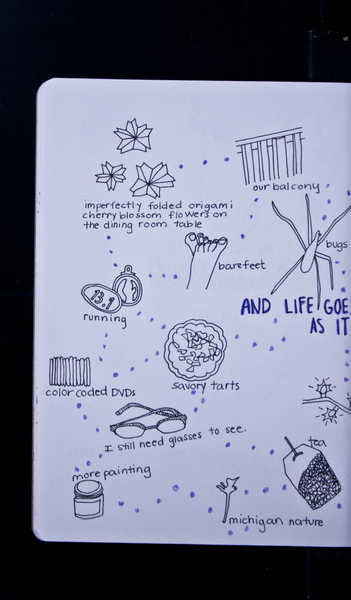 our balcony
imperfectly folded origami
cherry blossom flowers on
the dining room table
bugs
barefeet
13.1
running
AND LIFE GOE
AS IT
savory tarts
color coded DVDs
I still need glasses to see.
tea
more painting
michigan nature